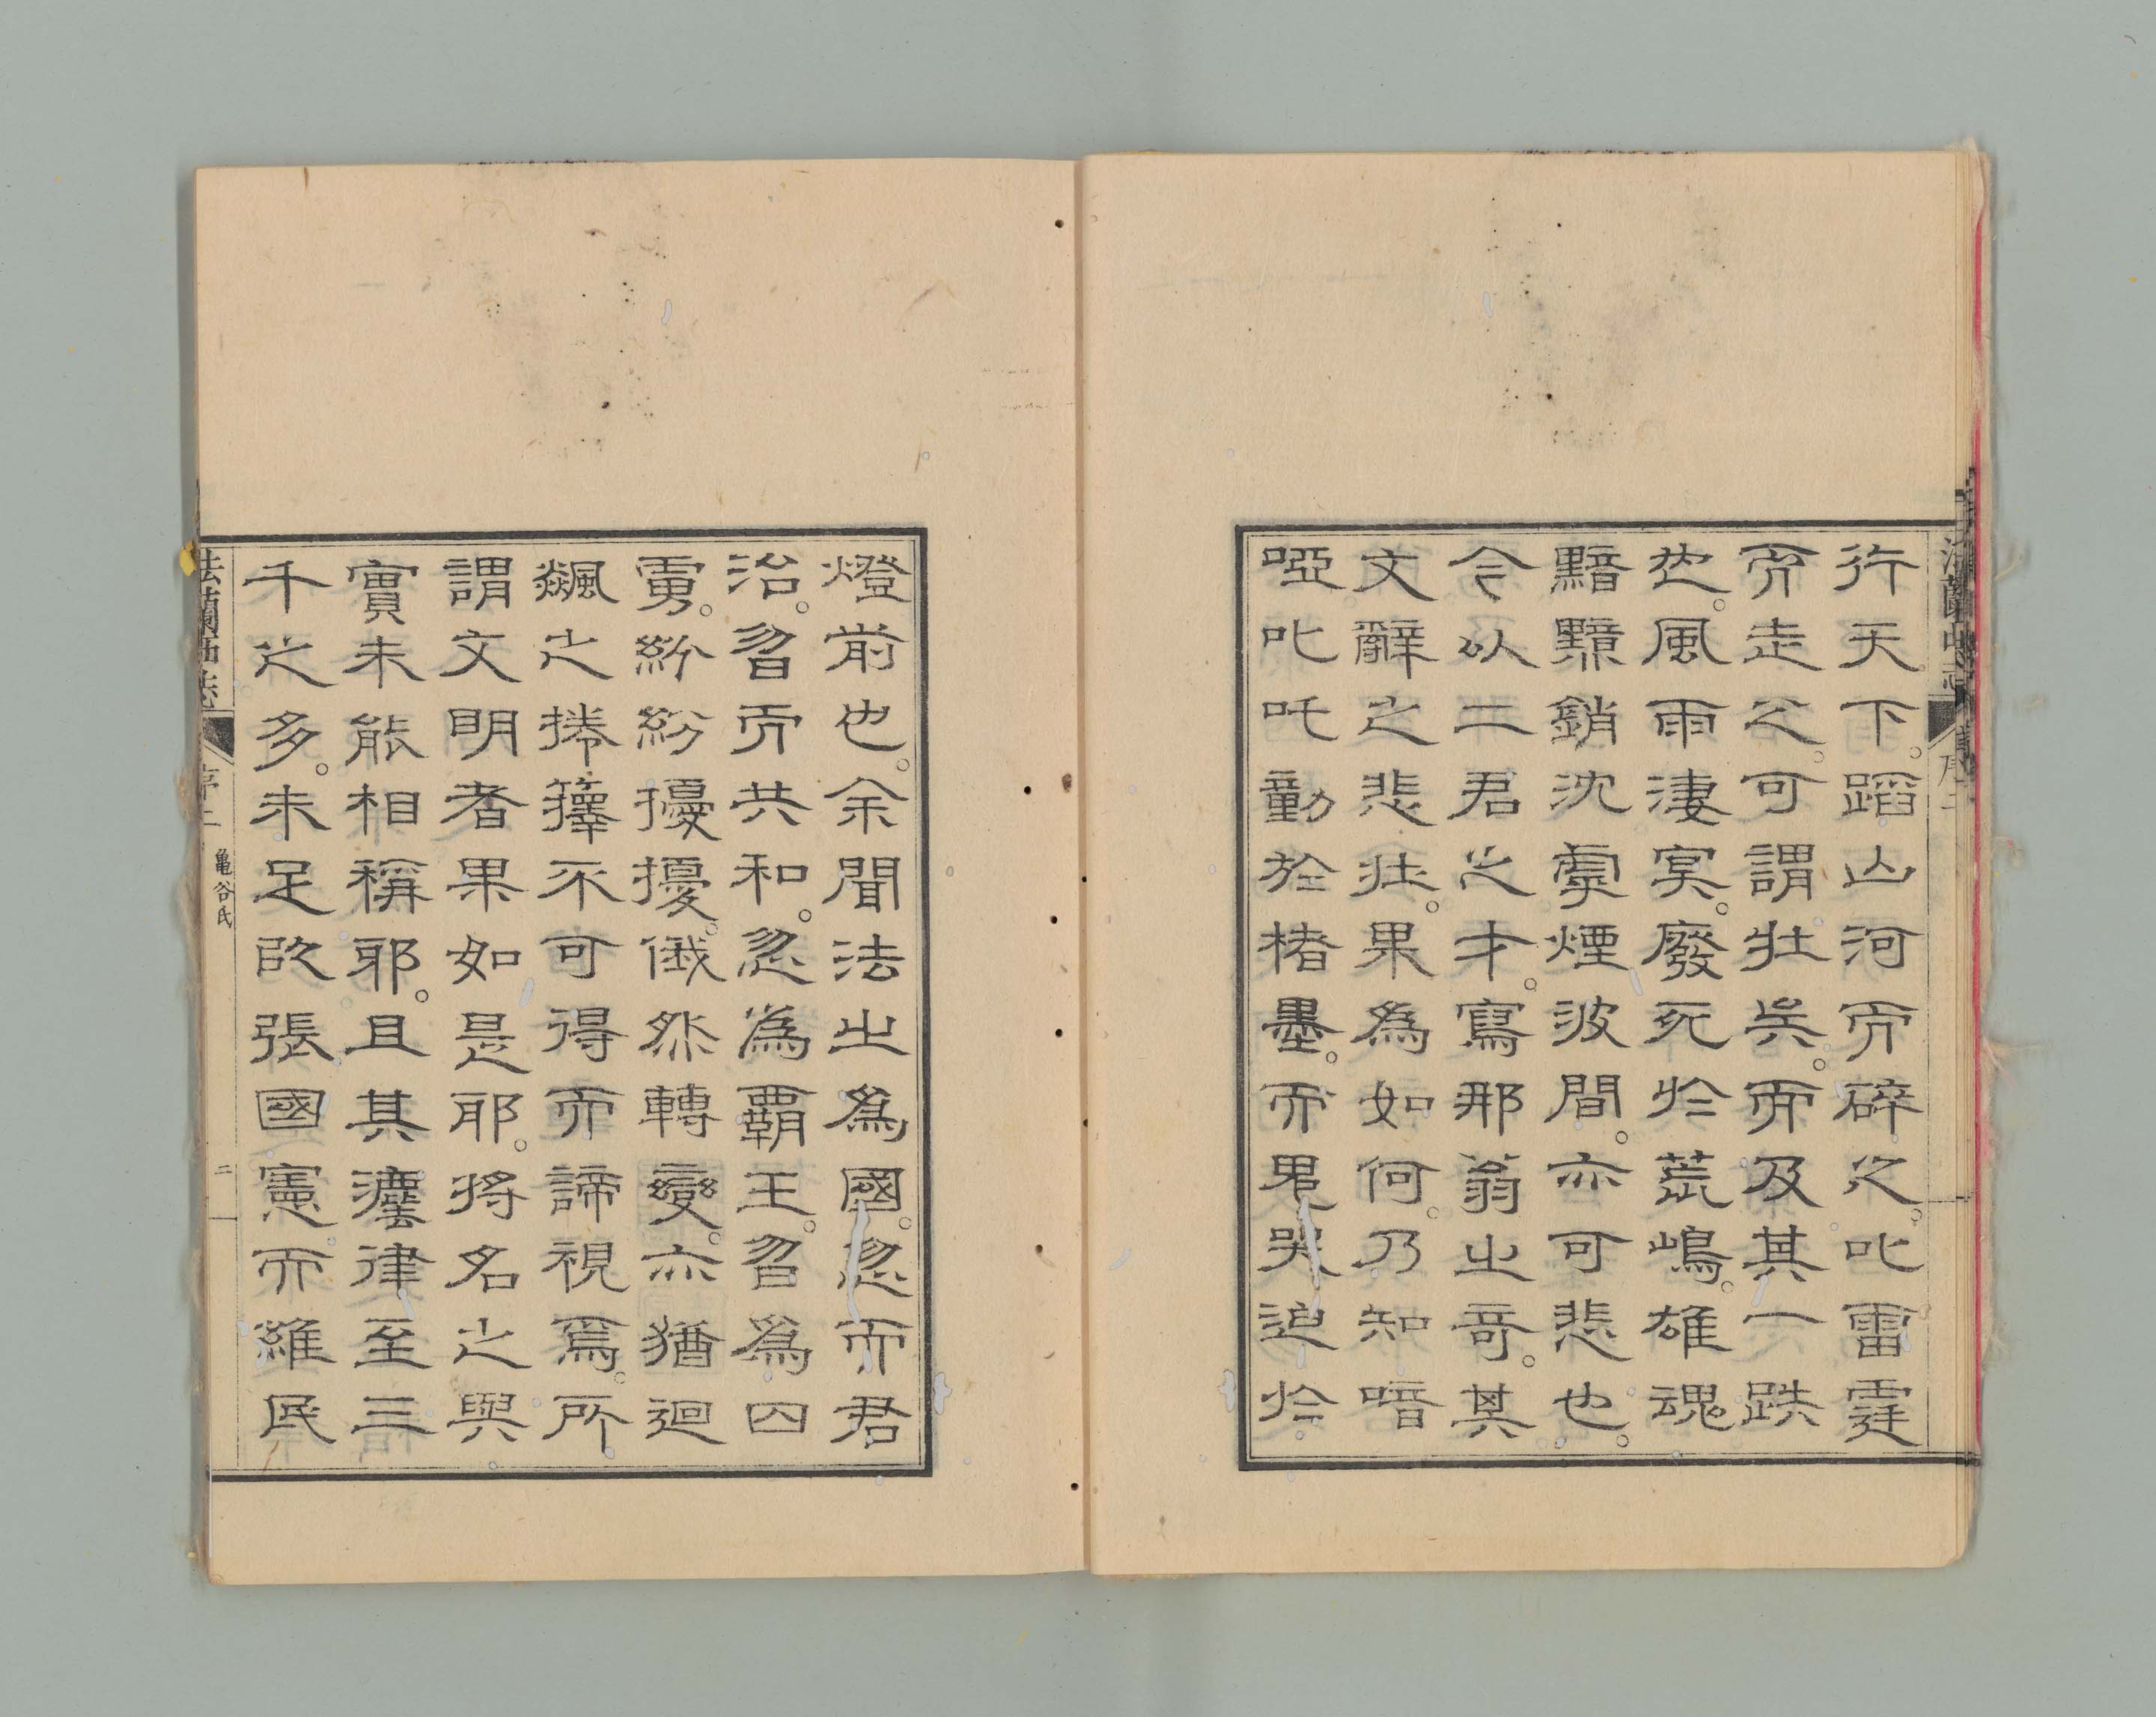 行天下。蹈山河而碎之。叱雷霆
而走之。可謂壯矣。而及其一跌
也。風雨凄寞。廢死於荒嶋。雄魂
黯黯銷沈雲煙波間。亦可悲也。
今以二君之才。寫那翁之奇。其
文辭之悲壯。果為如何。乃知喑
啞叱吒動於楮墨。而鬼哭迫於
燈前也。余聞法之為國。忽而君
治。忽而共和。忽為覇王。忽為四
雺。紛紛擾擾。儵然轉變。亦猶迴
飇之捲籜不可得而諦視焉。所
謂文明者果如是耶。將名之與
實未能相稱耶。且其灋律至三
千之多。未足以張國憲而維民
法蘭西志
序二
亀谷氏
二